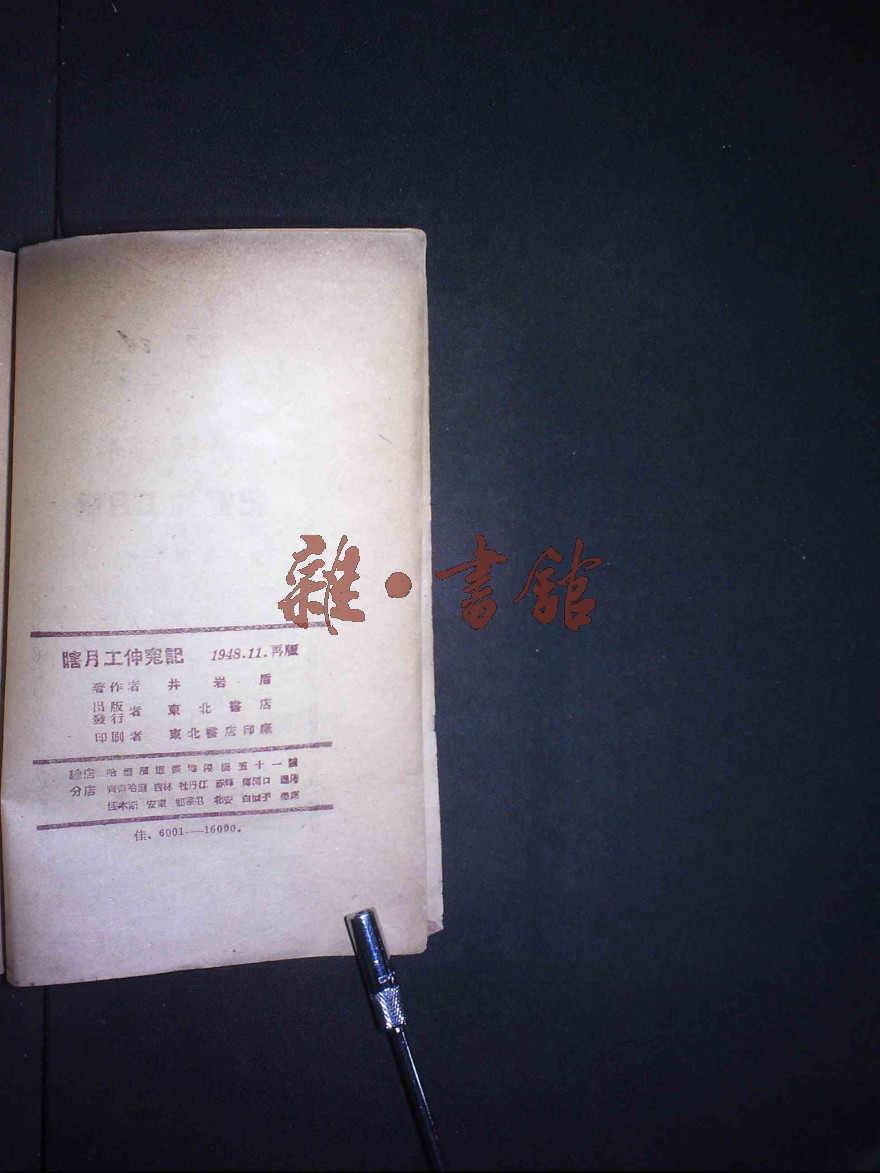 雜·書館
瞎月工伸冤記 1948.11.再版
著作者 井岩盾
出版
發行
者 東北書店
印刷者 東北書店印廠
總店 哈爾濱道裏地段街五十一號
分店 齊齊哈爾 吉林 牡丹江 赤峰
佳木斯 安東 北安 白城子
佳. 6001—16000.